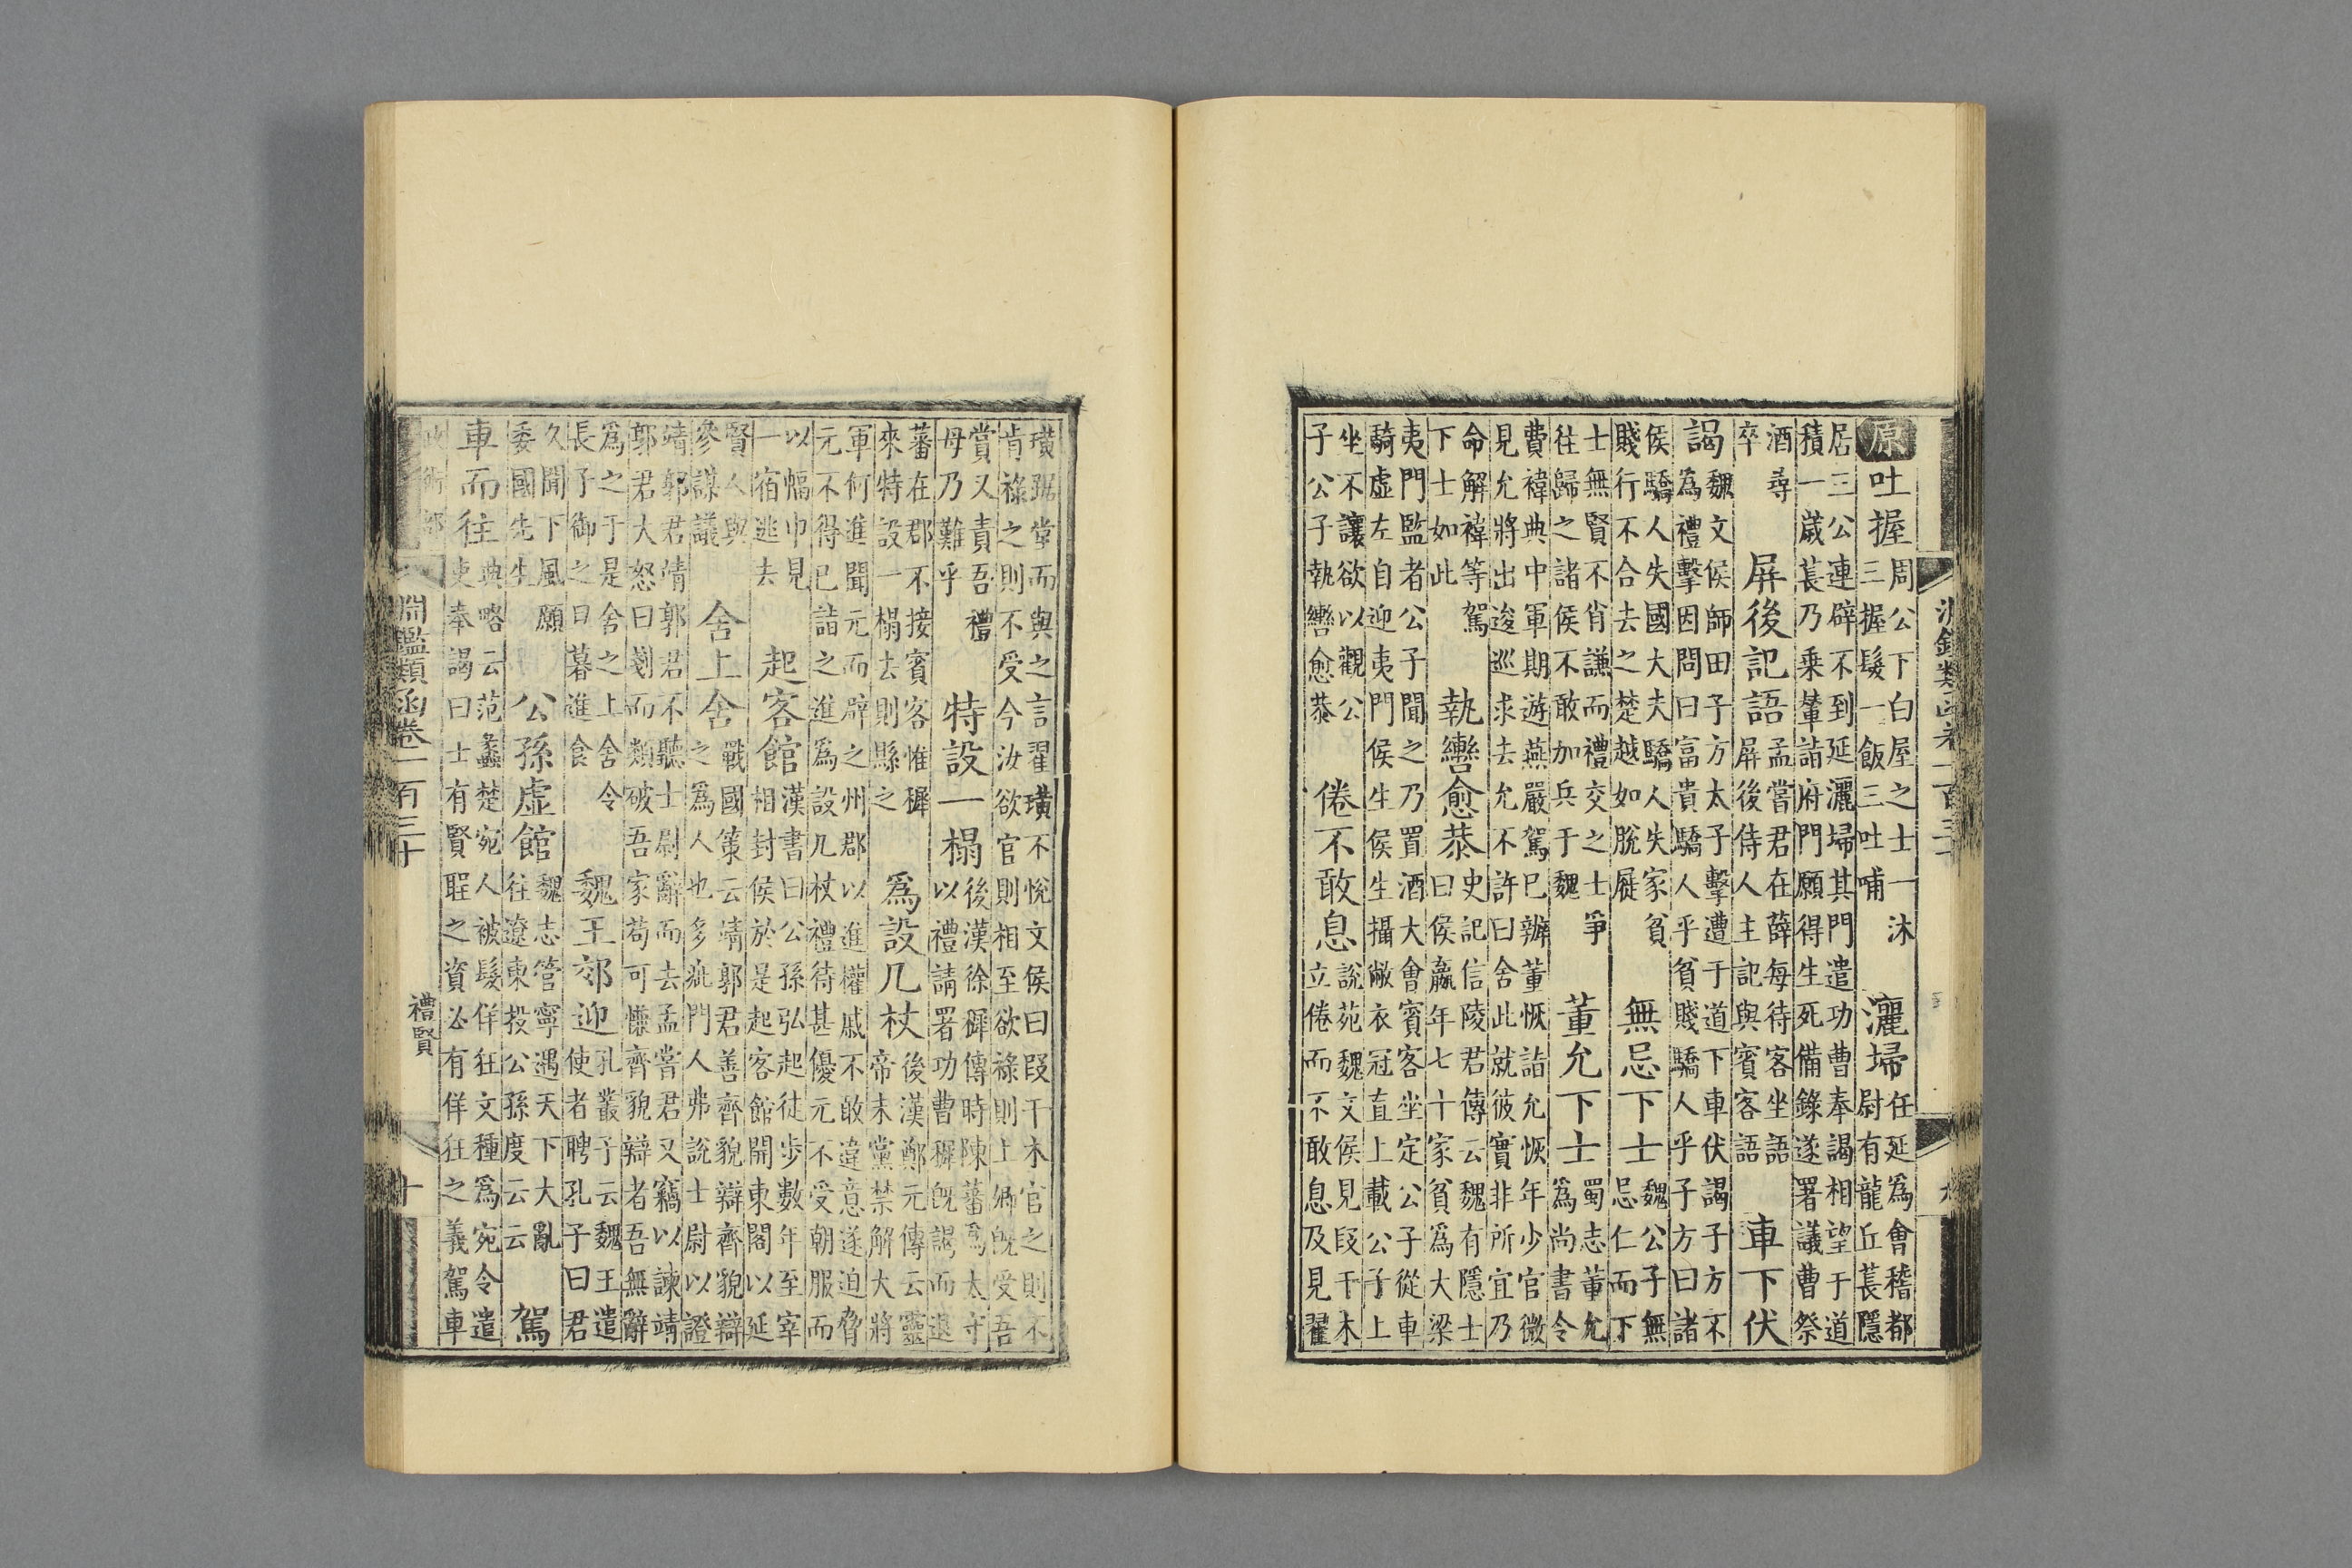 原
吐握
周公下白屋之士一沐
三握髮一飯三吐哺
灑掃
任延爲會稽都
尉有龍丘萇隱
居三公連辟不到延灑掃其門遣功曹奉謁相望于道
積一歲萇乃乗輦詣府門願得生死備錄遂署議曹祭
酒尋
卒
屏後記語
孟嘗君在薛每待客坐語
屏後侍人主記與賓客語
車下伏
謁
魏文侯師田子方太子擊遭于道下車伏謁子方不
爲禮擊因問曰富貴驕人乎貧賤驕人乎子方曰諸
侯驕人失國大夫驕人失家貧
賤行不合去之楚越如脫屣
無忌下士
魏公子無
忌仁而下
士無賢不肖謙而禮交之士爭
往歸之諸侯不敢加兵于魏
董允下士
蜀志董允
爲尚書令
費禕典中軍期遊燕嚴駕巳辦董恢詣允恢年少官微
見允將出逡巡求去允不許曰舍此就彼實非所宜乃
命解禕等駕
下士如此
執轡愈恭
史記信陵君傳云魏有隱士
曰侯嬴年七十家貧爲大梁
夷門監者公子聞之乃置酒大會賓客坐定公子從車
騎虛左自迎夷門侯生侯生攝敝衣冠直上載公子上
坐不讓欲以觀公
子公子執轡愈恭
倦不敢息
說苑魏文侯見段干木
立倦而不敢息及見翟
璜踞堂而與之言翟璜不悅文侯曰段干木官之則不
肯祿之則不受今汝欲官則相至欲祿則上卿旣受吾
賞又責吾禮
母乃難乎
特設一榻
後漢徐穉傳時陳蕃爲太守
以禮請署功曹穉旣謁而退
蕃在郡不接賓客惟穉
來特設一榻去則縣之
爲設几杖
後漢鄭元傳云靈
帝末黨禁解大將
軍何進聞元而辟之州郡以進權戚不敢違意遂迫脅
元不得已詣之進爲設几杖禮待甚優元不受朝服而
以幅巾見
一宿逃去
起客館
漢書曰公孫弘起徒步數年至宰
相封候於是起客館開東閣以延
賢人與
參謀議
舍上舍
戰國策云靖郭君善齊貌辯齊貌辯
之爲人也多疵門人弗說士尉以證
靖郭君靖郭君不聽士尉辭而去孟嘗君又竊以諫靖
郭君大怒曰剗而類破吾家苟可慊齊貌辯者吾無辭
爲之于是舍之上舍令
長子御之旦暮進食
魏王郊迎
孔叢子云魏王遣
使者聘孔子曰君
久聞下風願
委國先生
公孫虛館
魏志管寧遇天下大亂
往遼東投公孫度云云
駕
車而往
典略云范蠡楚宛人被髮佯狂文種爲宛令遣
吏奉謁曰士有賢聖之資必有佯狂之義駕車
淵鑑類函卷一百三十
禮賢
十